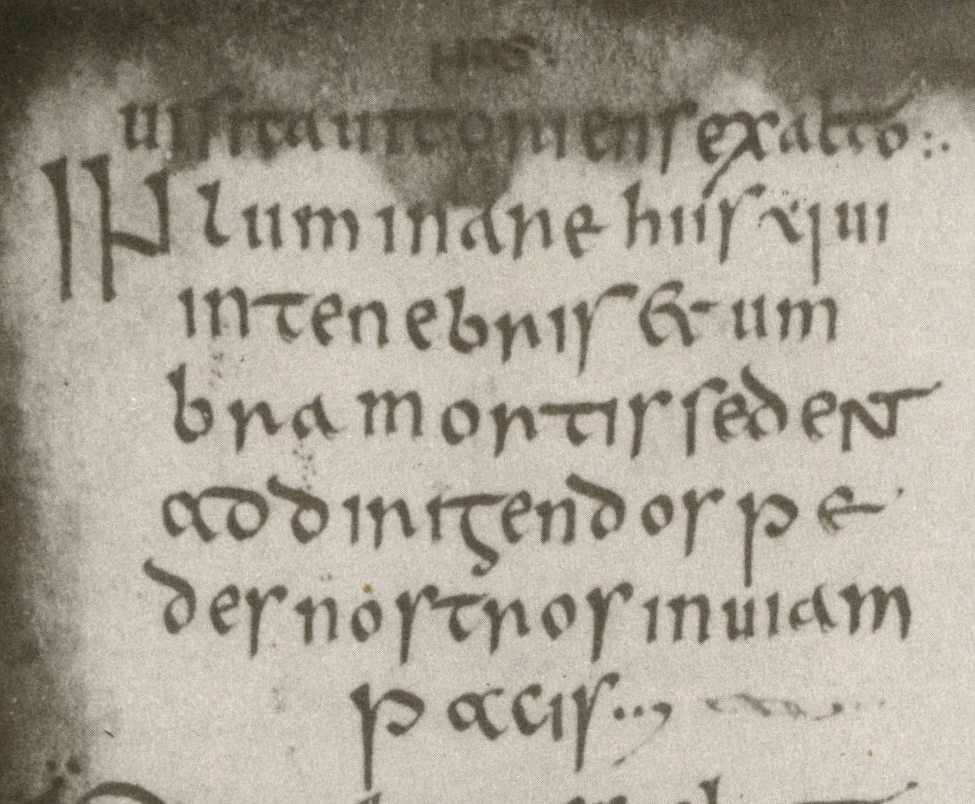 nos
uisitauit oriens ex alto:.
Inluminare hiis qui
in tenebris & um
bra mortis sedent
ad dirigendos pe
des nostros in uiam
pacis..,